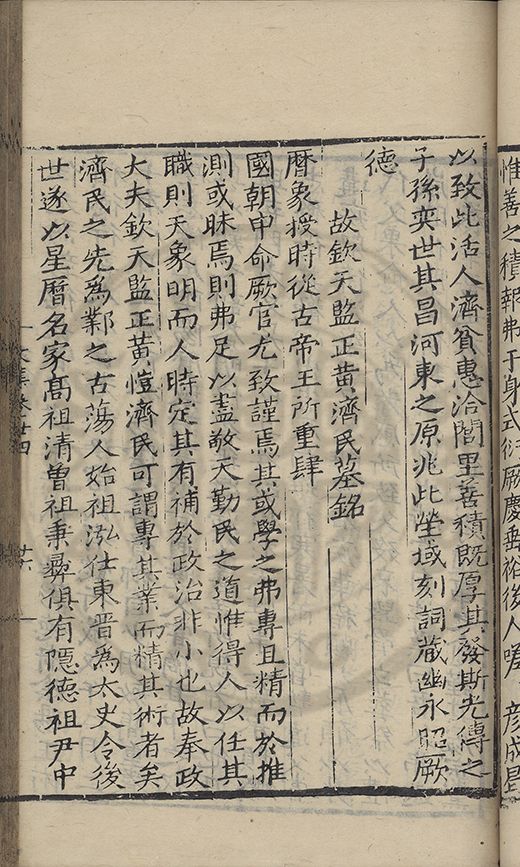 惟善之積報弗于身式衍厥慶垂裕後人噯彥成星
以致此活人濟貧惠洽閭里善積既厚其發斯光傳之
子孫奕世其昌河東之原兆此塋域刻詞藏幽永昭厥
德
故欽天監正黃濟民墓銘
曆象授時從古帝王所重肆
國朝申命厥官尤致謹焉其或學之弗專且精而於推
測或昧焉則弗足以盡敬天勤民之道惟得人以任其
職則天象明而人時定其有補於政治非小也故奉政
大夫欽天監正黃愷濟民可謂專其業而精其術者矣
濟民之先為鄴之古蕩人始祖泓仕東晉為太史令後
世遂以星曆名家高祖清曾祖秉彝俱有隱德祖尹中
文集卷廿四
廿六